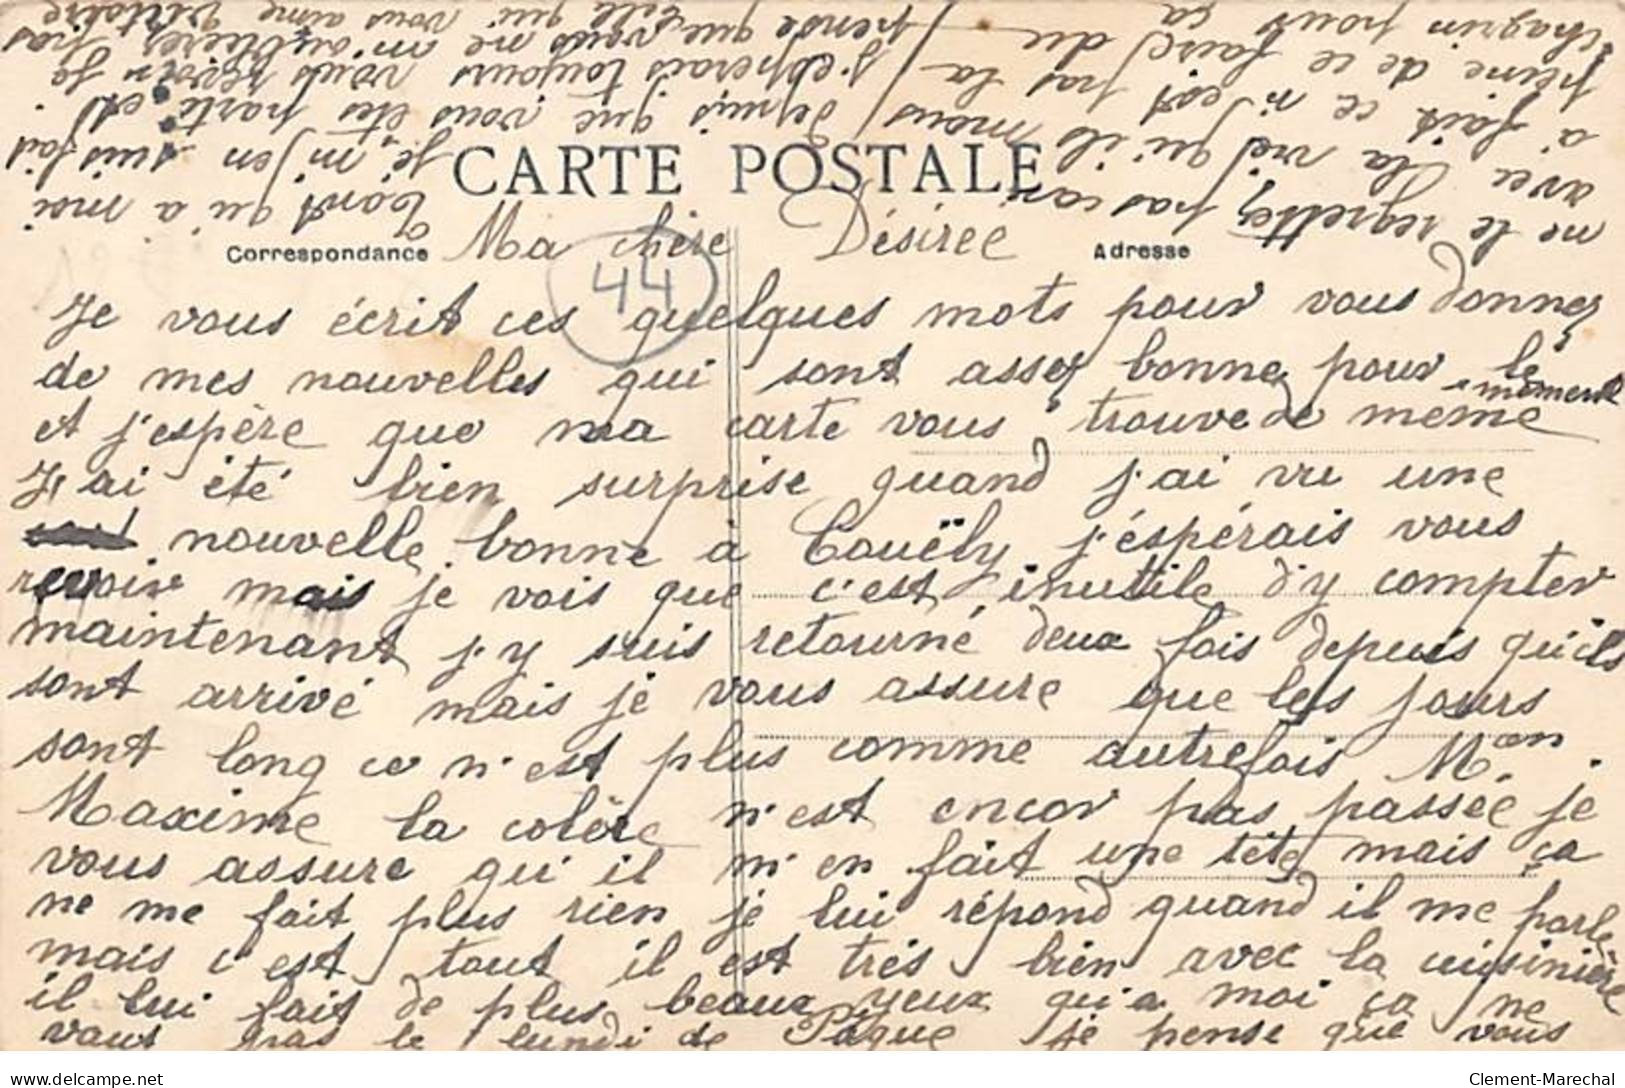 CARTE POSTALE
Correspondance
Adresse
44
Ma chère Désirée
Je vous écrit ces quelques mots pour vous donner
de mes nouvelles qui sont assez bonne pour le moment
et j'espère que ma carte vous trouve de meme
J'ai été bien surprise quand j'ai vu une
nouvelle bonne à Couëly j'éspérais vous
revoir mais je vois que c'est inutile d'y compter
maintenant j'y suis retourné deux fois depuis qu'ils
sont arrivé mais je vous assure que les jours
sont long ce n'est plus comme autrefois Mon
Maxime la colère n'est encor pas passée je
vous assure qu'il m'en fait une tête mais ça
ne me fait plus rien je lui répond quand il me parle
mais c'est tout il est très bien avec la cuisinière
il lui fait de plus beaux yeux qu'a moi ça ne
vaut pas le lundi de Pâque je pense que vous
me le regrettez pas car
avec la vie qu'ils mons
a fait ce n'est pas la
peine de ce faire du
chagrin pour ça
Tant qu'a moi
je m'en suis fait
depuis que vous êtes partie et
j'esperais toujours vous revoir Je
pense que vous me m'oublierez pas
celle qui vous aime Victoire
Clement-Marechal
delcampe.net